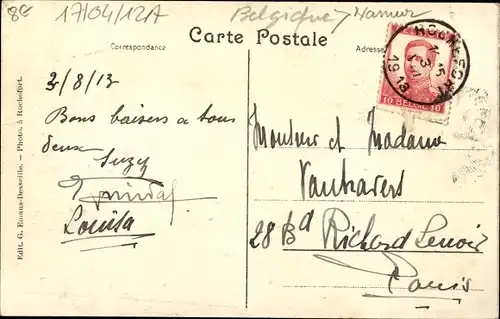 8€
17/04/12A
Belgique Namur
Carte Postale
Correspondance
Adresse
ROCHEFORT
15
3
1913
10 BELGIE 10
3/8/13
Bons baisers a tous
deux
Suzy
Louisa
Monsieur et Madame
28 Bd Richard Lenoir
Paris
Edit. G. Enonus-Desseille. — Photo. à Rochefort.